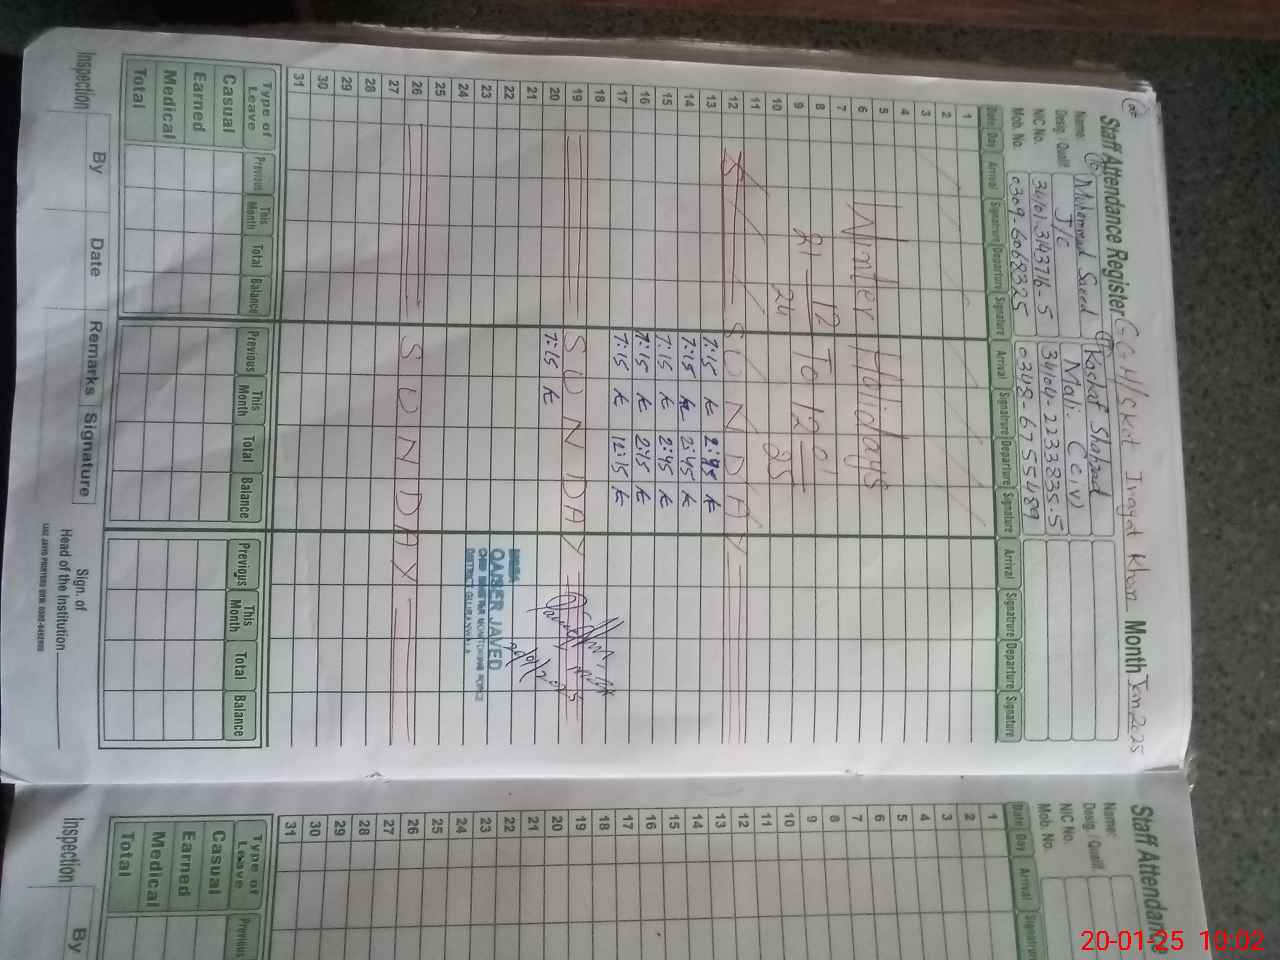 Staff Attendance Register G.G.H/S Kot Inayat Khan Month Jan 2025
Name: (10) Muhammad Saeed (11) Kashaf Shahzad
Desig. Qualif. J/C Mali. (Civ)
NIC No. 34101-3143716-5 34104-2233835-5
Mob. No. 0309-6068325 0348-6755489
Date Day Arrival Signature Departure Signature Arrival Signatrure Departure Signature Arrival Signatrure Departure Signature
1
2
3
4
5
6 Winter Holidays
7
8 21-12 To 12-01
9 24 25
10
11
12 S U N D A Y
13 7:15 k 2:45 k
14 7:15 k 2:45 k
15 7:15 k 2:45 k
16 7:15 k 2:45 k
17 7:15 k 12:15 k
18
19 S U N D A Y
20 7:15 k
20/01/2025
21
22
QAISER JAVED
23
24
25
26 S U N D A Y
27
28
29
30
31
Type of Leave Previous This Month Total Balance Previous This Month Total Balance Previous This Month Total Balance
Casual
Earned
Medical
Total
Inspection By Date Remarks Signature Sign. of
Head of the Institution
Staff Attendance
Name:
Desig. / Qualif.
NIC No.
Mob. No.
Date Day Arrival Signatrure
1
2
3
4
5
6
7
8
9
10
11
12
13
14
15
16
17
18
19
20
21
22
23
24
25
26
27
28
29
30
31
Type of Leave Previous
Casual
Earned
Medical
Total
Inspection By
20-01-25 10:02